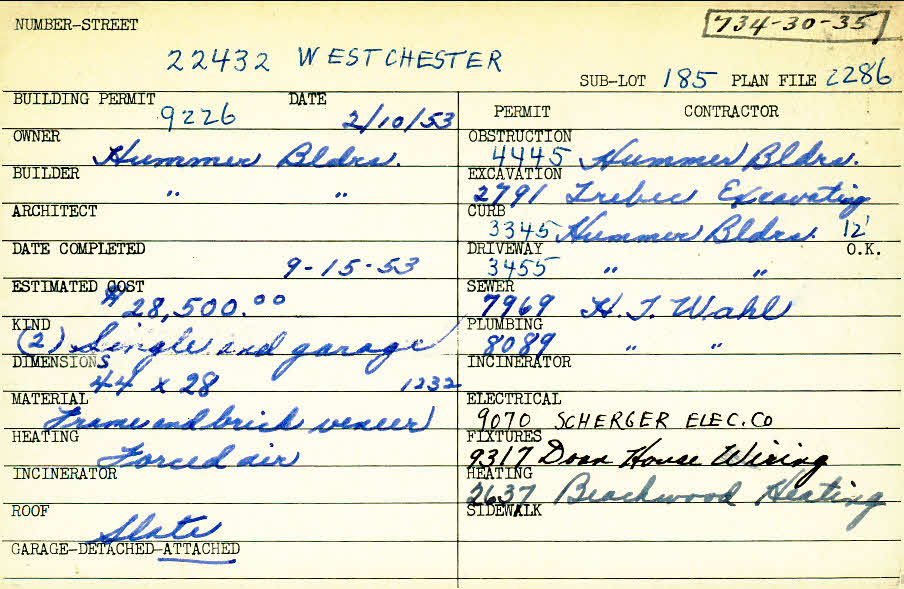 NUMBER-STREET
734-30-35
22432 WESTCHESTER
SUB-LOT 185 PLAN FILE 2286
BUILDING PERMIT DATE
9226 2/10/53
OWNER
Hummer Bldrs.
BUILDER
" "
ARCHITECT
DATE COMPLETED
9-15-53
ESTIMATED COST
$28,500.00
KIND
(2) Single and garage
DIMENSIONS
44 x 28 1232
MATERIAL
Frame and brick veneer
HEATING
Forced air
INCINERATOR
ROOF
Slate
GARAGE-DETACHED-ATTACHED
PERMIT CONTRACTOR
OBSTRUCTION
4445 Hummer Bldrs.
EXCAVATION
2791 Trebec Excavating
CURB
3345 Hummer Bldrs. 12'
DRIVEWAY O.K.
3455 " "
SEWER
7969 H. T. Wahl
PLUMBING
8089 " "
INCINERATOR
ELECTRICAL
9070 SCHERGER ELEC. CO
FIXTURES
9317 Doan House Wiring
HEATING
2637 Beachwood Heating
SIDEWALK